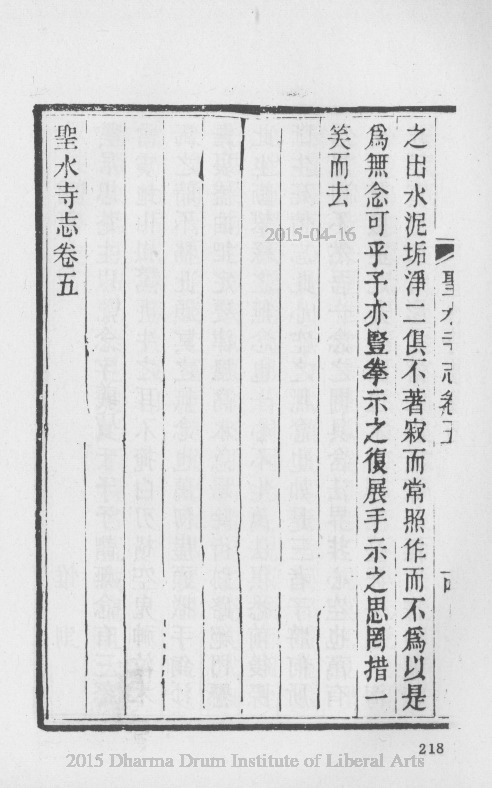 聖水寺志卷五
之出水泥垢淨二俱不著寂而常照作而不爲以是
爲無念可乎予亦豎拳示之復展手示之思罔措一
笑而去
聖水寺志卷五
2015-04-16
218
2015 Dharma Drum Institute of Liberal Arts